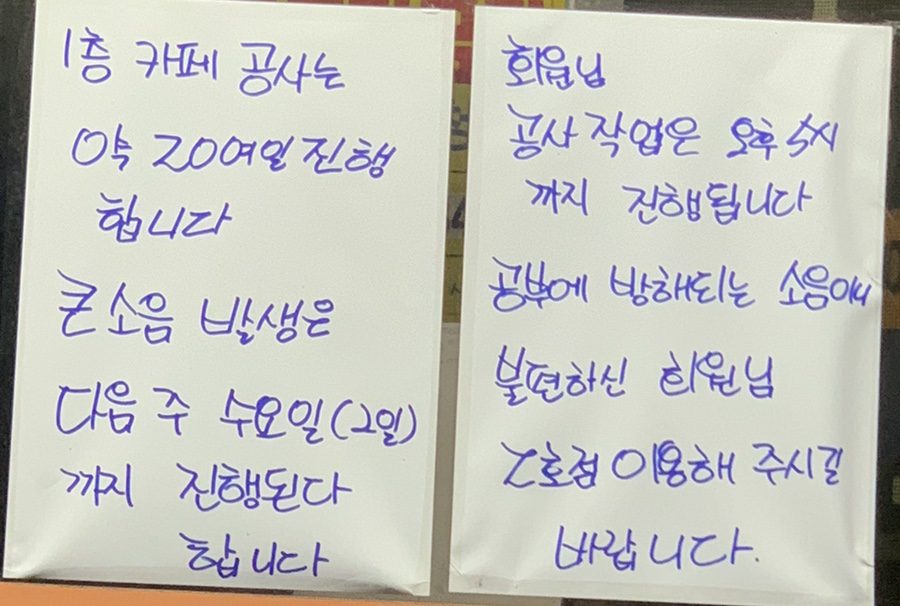 1층 카페 공사는
약 20여일 진행
합니다
큰 소음 발생은
다음 주 수요일(2일)
까지 진행된다
합니다
회원님
공사 작업은 오후 5시
까지 진행됩니다
공부에 방해되는 소음에
불편하신 회원님
2호점 이용해 주시길
바랍니다.